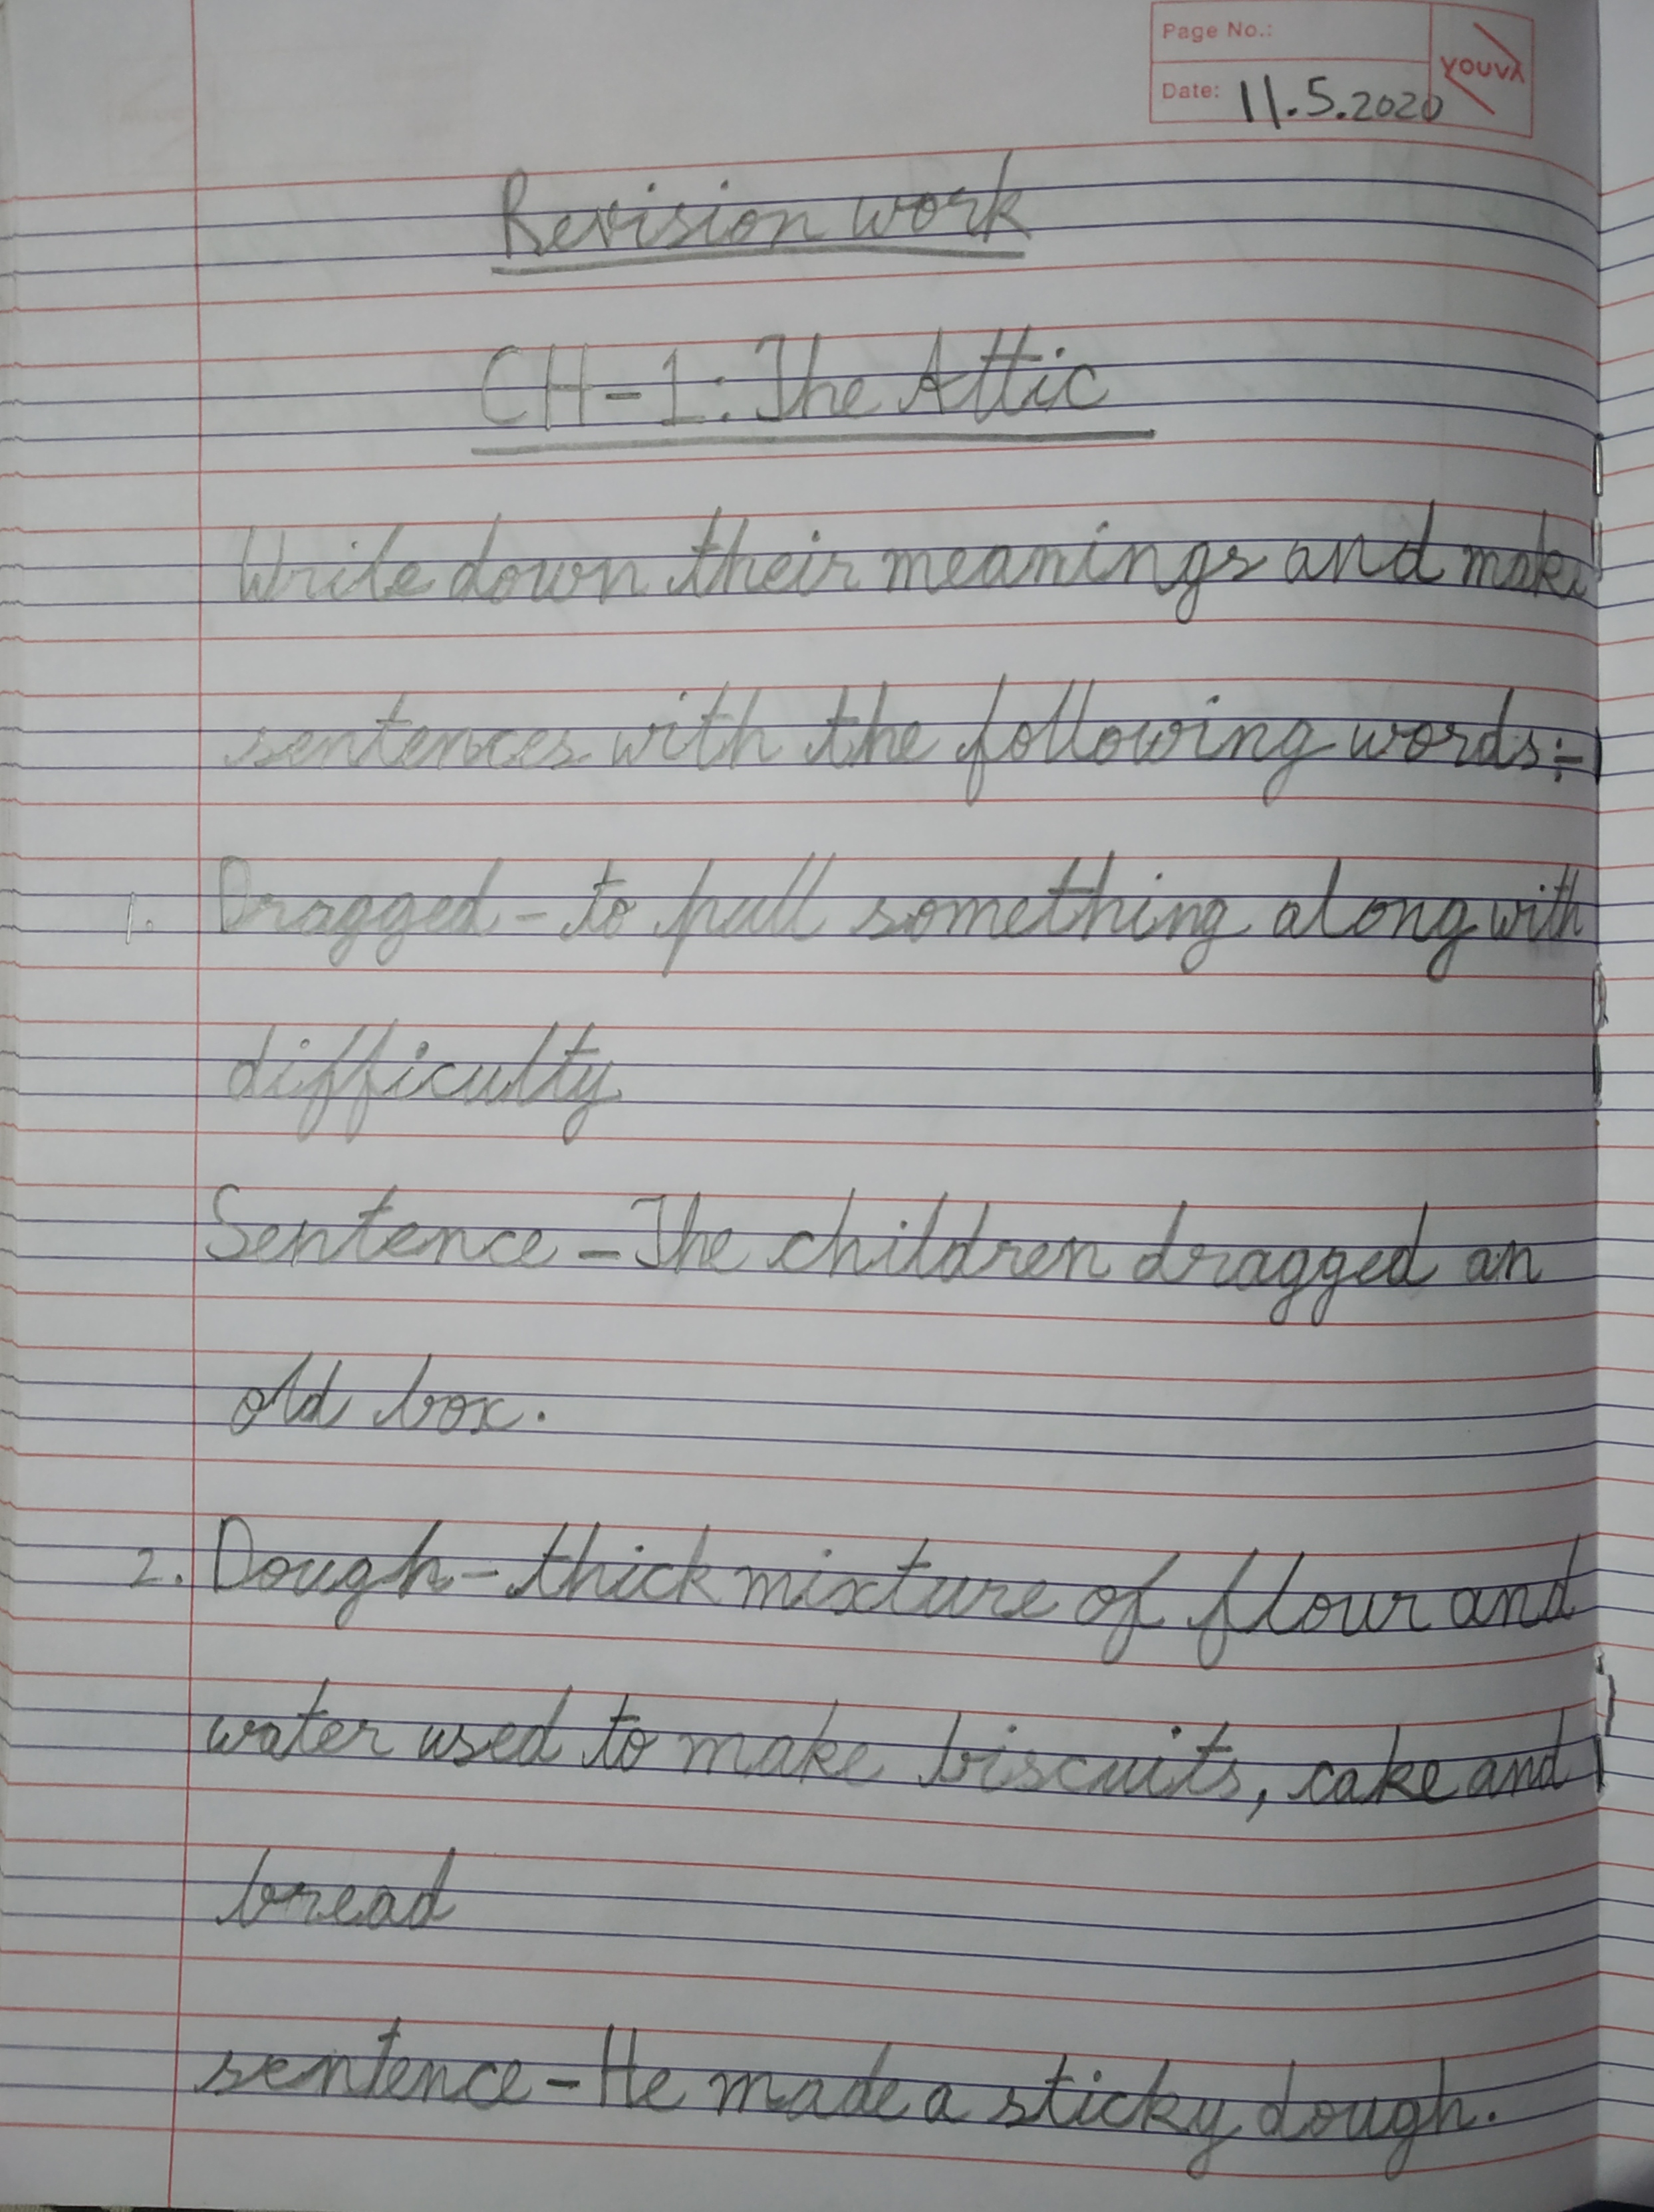 Page No.:
youva
Date: 11.5.2020
Revision work
CH-1: The Attic
Write down their meanings and make
sentences with the following words:-
1. Dragged - to pull something along with
difficulty
Sentence - The children dragged an
old box.
2. Dough - thick mixture of flour and
water used to make biscuits, cake and
bread
sentence - He made a sticky dough.